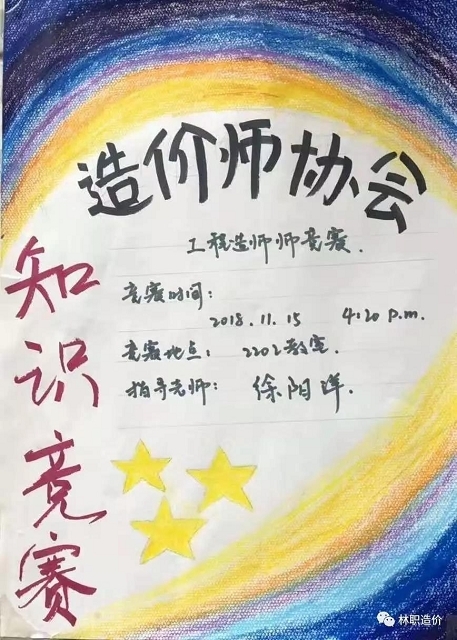 造价师协会
知识竞赛
工程造师师竞赛.
竞赛时间:
2018.11.15 4:20 p.m.
竞赛地点: 2202教室.
指导老师: 徐阳洋.
林职造价